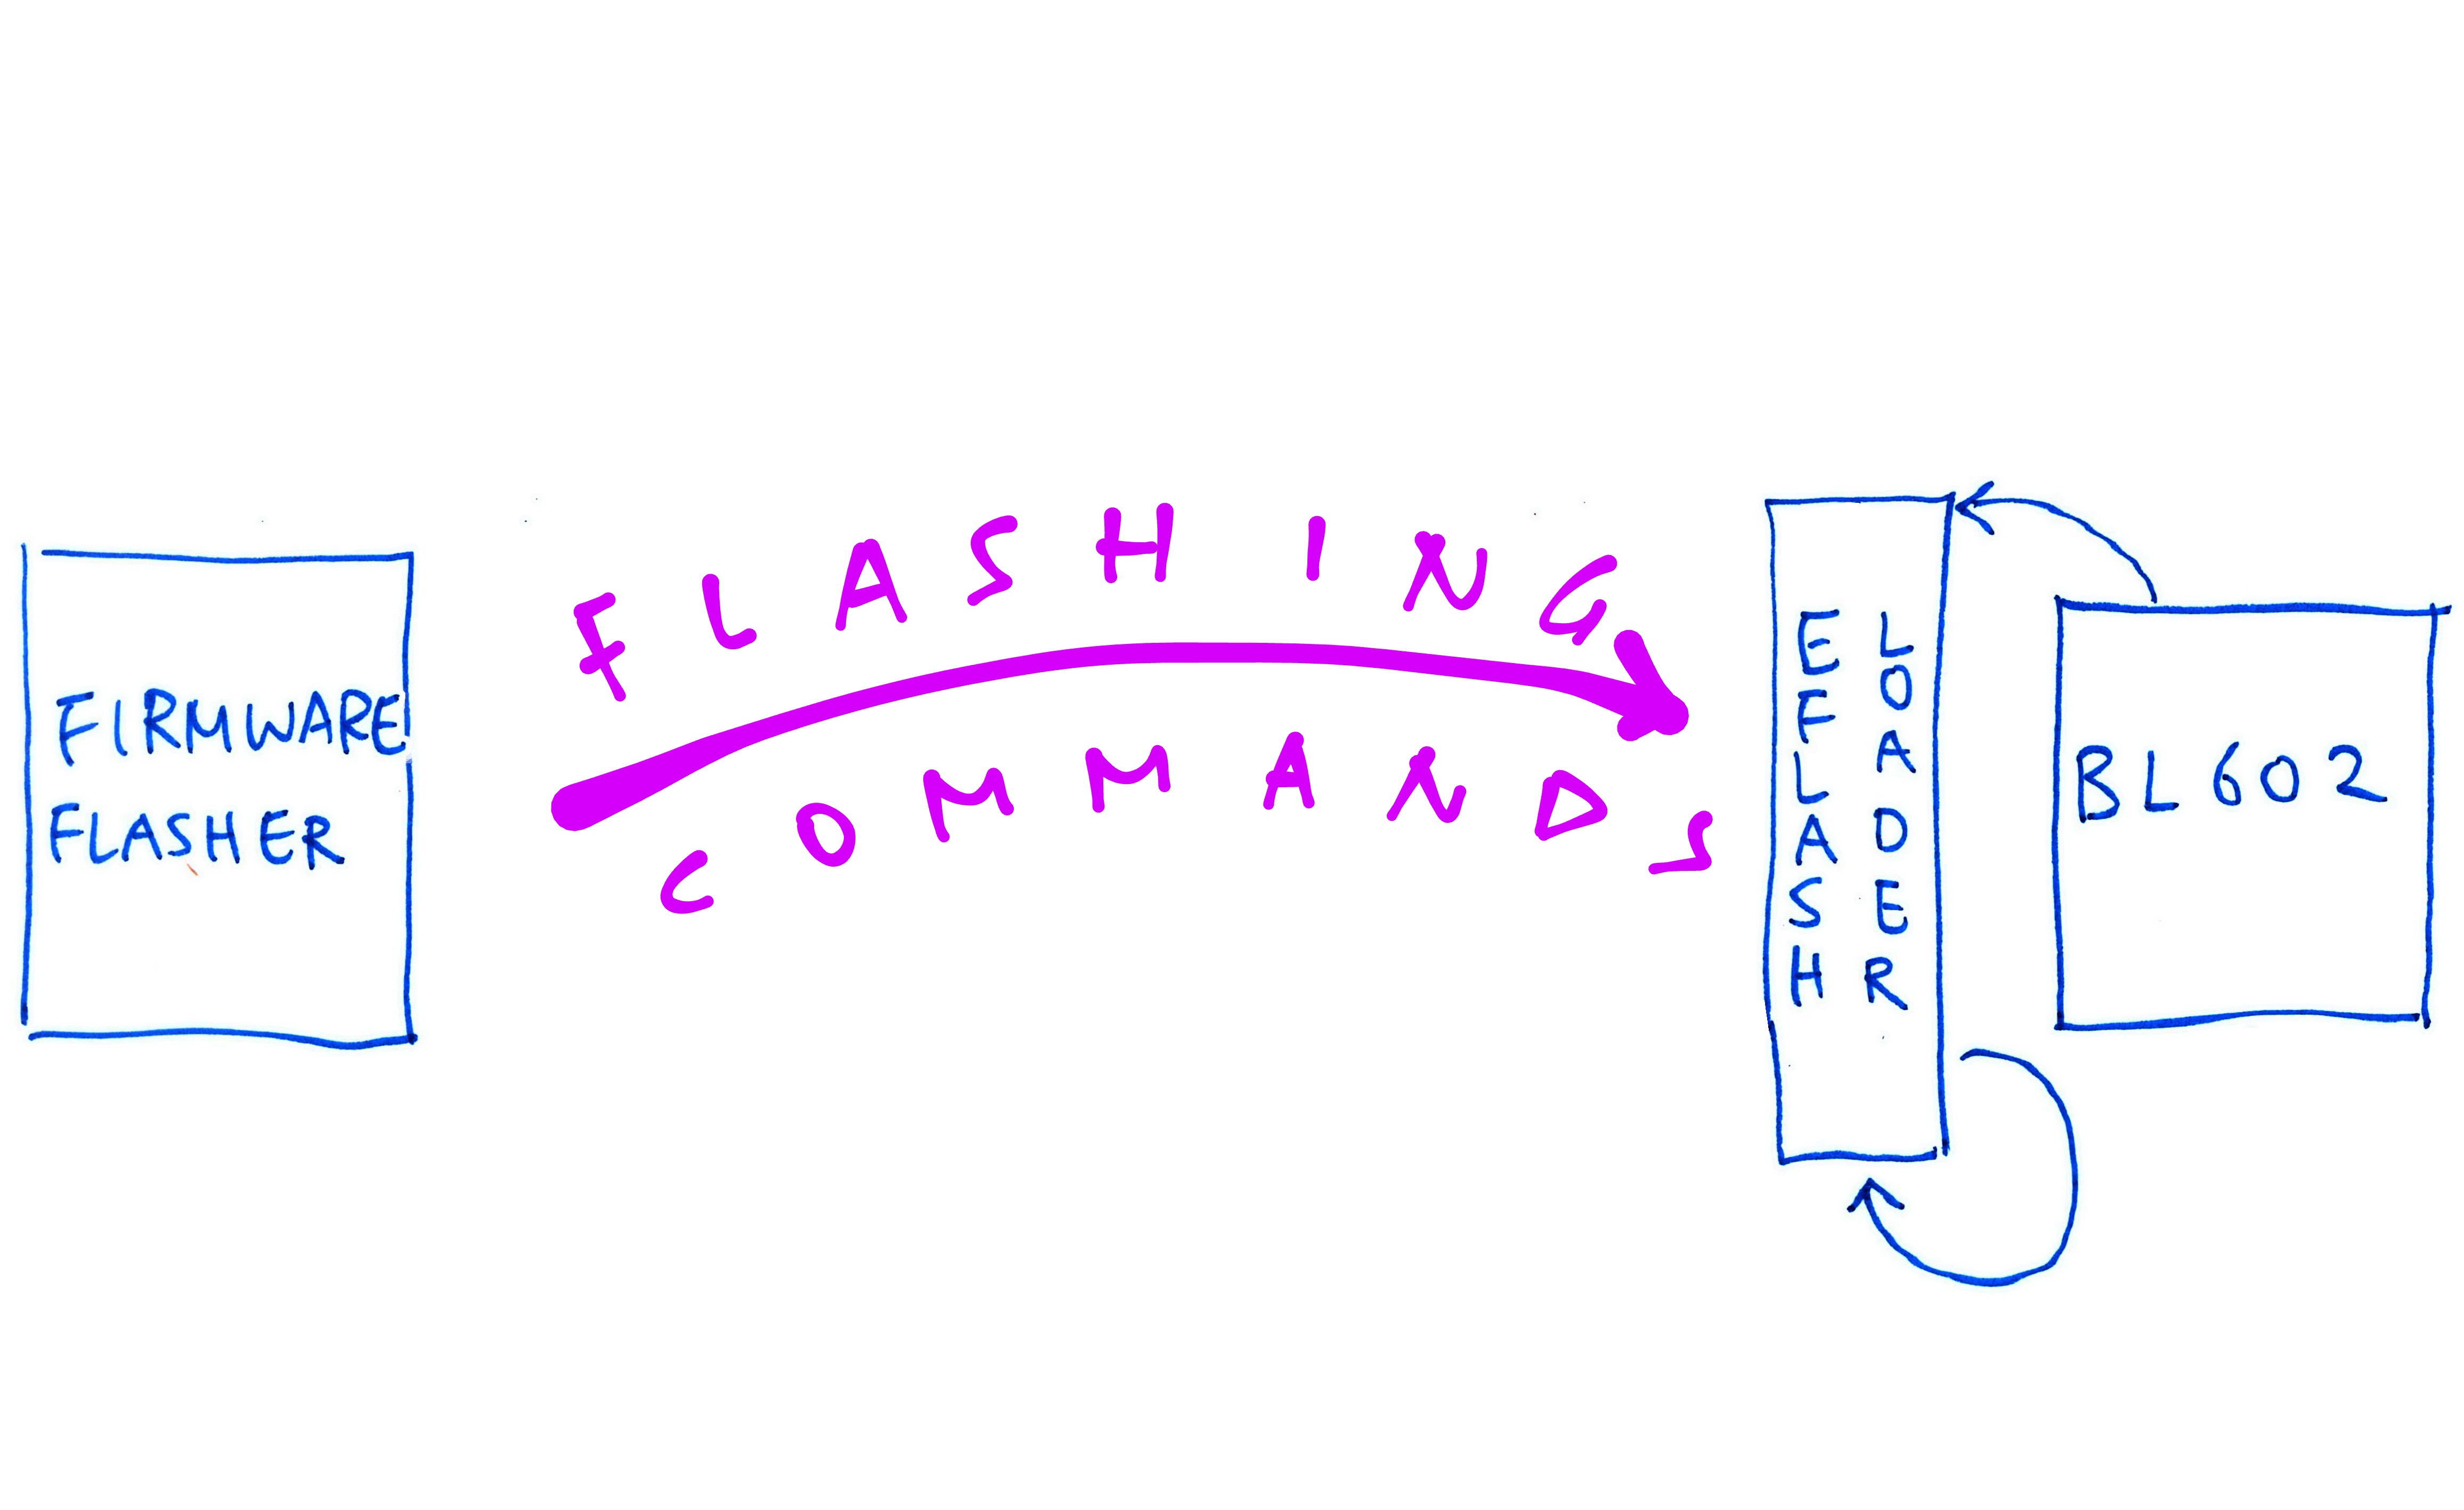 FIRMWARE
FLASHER
FLASHING
COMMANDS
EFLASH
LOADER
BL602